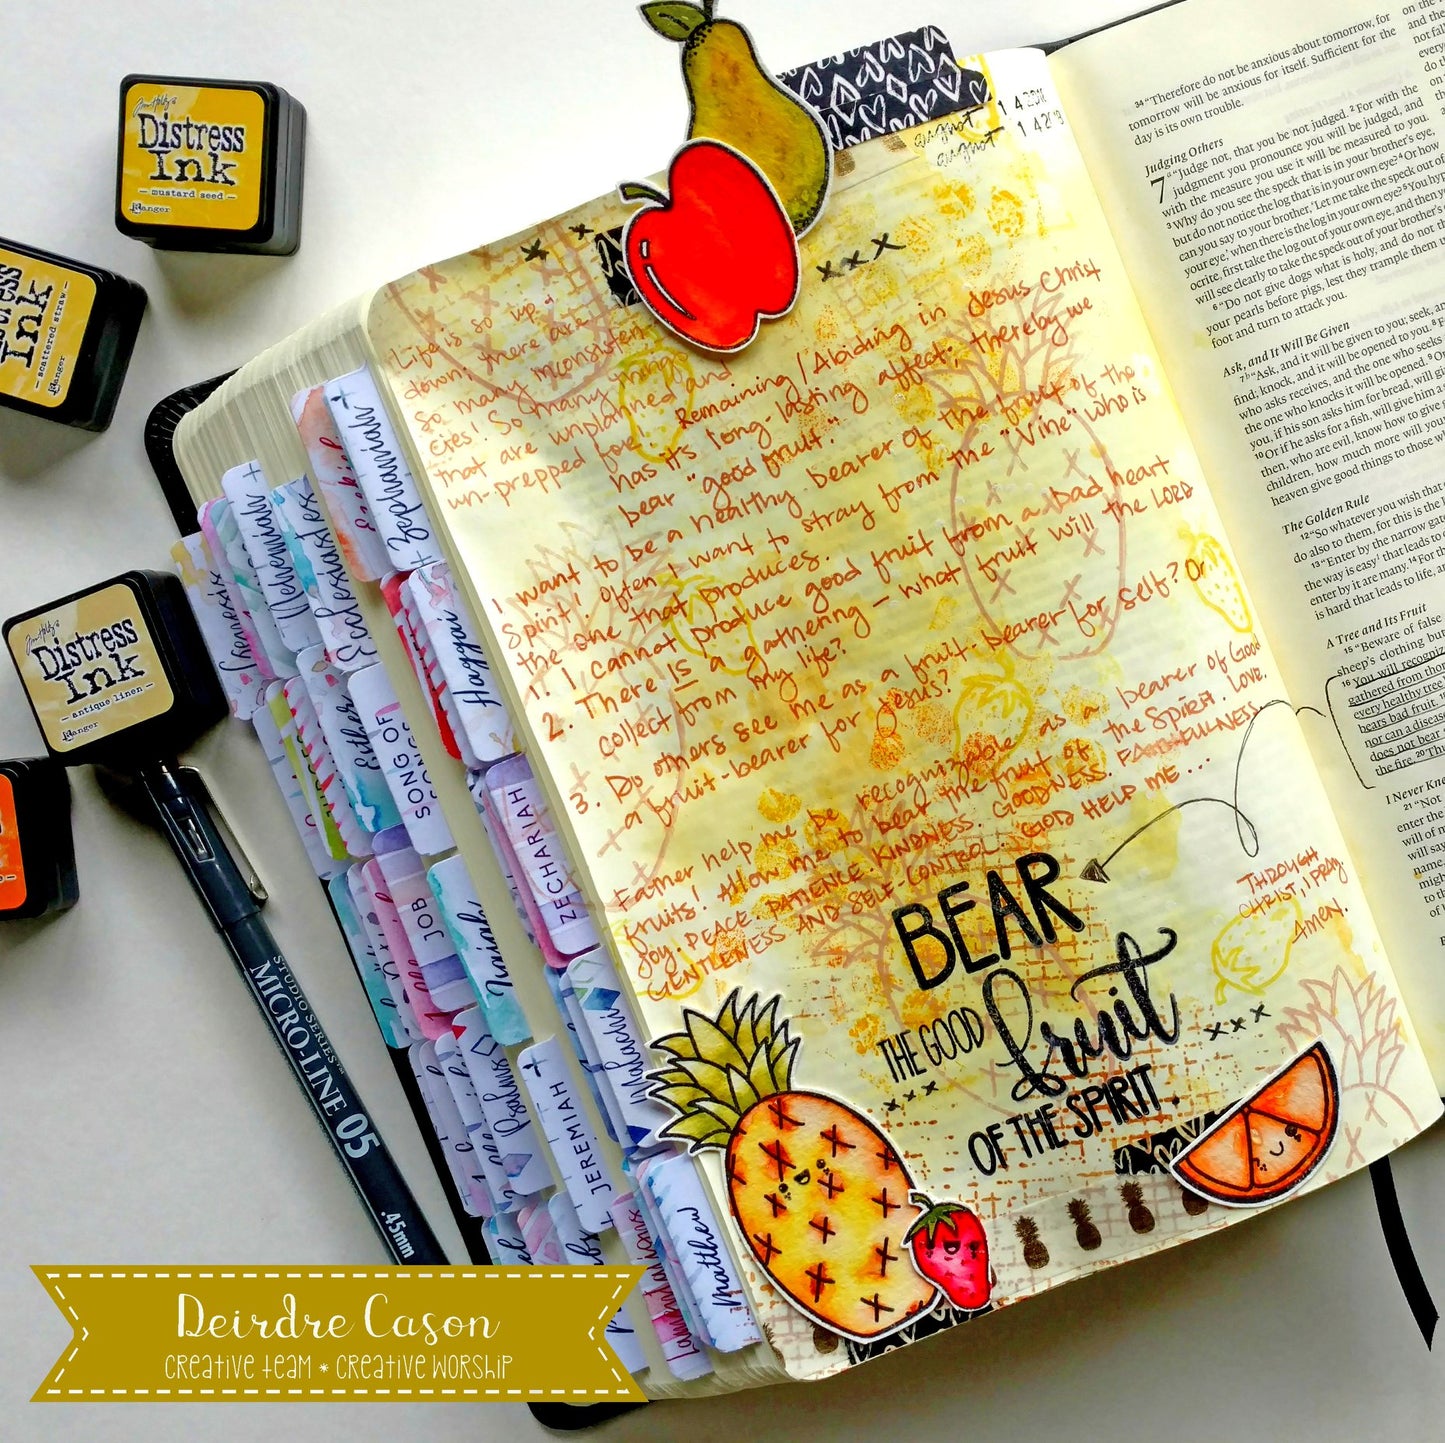 Tim Holtz
Distress
Ink
— mustard seed —
Ranger
Ink
— scattered straw —
Ranger
Tim Holtz
Distress
Ink
— antique linen —
Ranger
STUDIO SERIES™
MICRO-LINE 05
.45mm
Genesis
Nehemiah
Ecclesiastes
Ezekiel
Zephaniah
Haggai
Esther
SONG OF
SONGS
ZECHARIAH
JOB
Isaiah
Malachi
Psalms
JEREMIAH
Lamentations
Matthew
august 1 4 201
august 1 4 201
Life is so up &
down; there are
so many inconsisten-
cies! So many things
that are unplanned and
un-prepped for. Remaining/Abiding in Jesus Christ
has it's long-lasting affect; thereby we
bear "good fruit."
I want to be a healthy-bearer of the fruit of the
Spirit! Often I want to stray from the "Vine" who is
the one that produces.
1. I cannot produce good fruit from a bad heart
2. There IS a gathering — what fruit will the LORD
collect from my life?
3. Do others see me as a fruit-bearer for self? Or
a fruit-bearer for Jesus?
Father help me be recognizable as a bearer of Good
fruits! Allow me to bear the fruit of the Spirit. Love.
Joy. PEACE. PATIENCE. KINDNESS. GOODNESS. FAITHFULNESS.
GENTLENESS AND SELF-CONTROL. GOD HELP ME ...
THROUGH
CHRIST, I PRAY.
AMEN.
BEAR
THE GOOD fruit
OF THE SPIRIT.
34 "Therefore do not be anxious about tomorrow, for
tomorrow will be anxious for itself. Sufficient for the
day is its own trouble.
Judging Others
7 "Judge not, that you be not judged. 2 For with the
judgment you pronounce you will be judged, and
with the measure you use it will be measured to you.
3 Why do you see the speck that is in your brother's eye,
but do not notice the log that is in your own eye? 4 Or how
can you say to your brother, 'Let me take the speck out of
your eye,' when there is the log in your own eye? 5 You hyp
ocrite, first take the log out of your own eye, and then y
will see clearly to take the speck out of your brother's
6 "Do not give dogs what is holy, and do not th
your pearls before pigs, lest they trample them u
foot and turn to attack you.
Ask, and It Will Be Given
7 "Ask, and it will be given to you; seek, an
find; knock, and it will be opened to you. 8 F
who asks receives, and the one who seeks
the one who knocks it will be opened. 9 O
you, if his son asks him for bread, will giv
10 Or if he asks for a fish, will give him a
then, who are evil, know how to give
children, how much more will your
heaven give good things to those w
The Golden Rule
12 "So whatever you wish that
do also to them, for this is the
13 "Enter by the narrow gat
the way is easy that leads to
enter by it are many. 14 For t
is hard that leads to life, ar
A Tree and Its Fruit
15 "Beware of false
sheep's clothing but
16 You will recogniz
gathered from thor
every healthy tree
bears bad fruit.
nor can a diseas
does not bear
the fire. 20 Th
I Never Kne
21 "Not
enter the
will of m
will say
name
Deirdre Cason
CREATIVE TEAM * CREATIVE WORSHIP